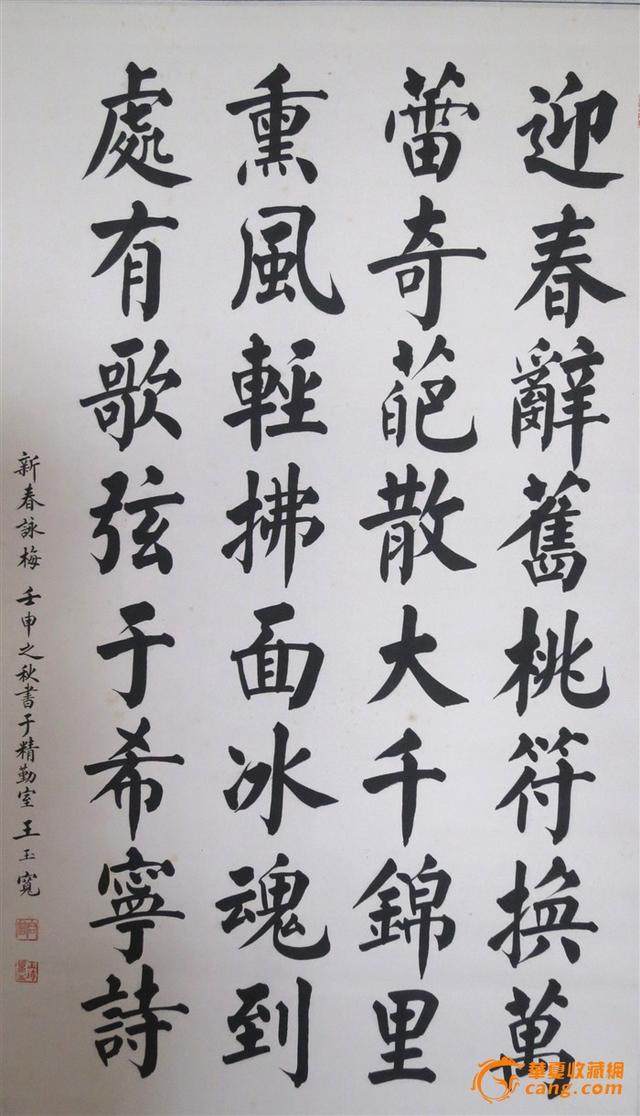 迎春辭舊桃符換萬
蕾奇葩散大千錦里
熏風輕拂面冰魂到
處有歌弦于希寧詩
新春詠梅 壬申之秋書于精勤室 王玉寬
華夏收藏網
cang.com